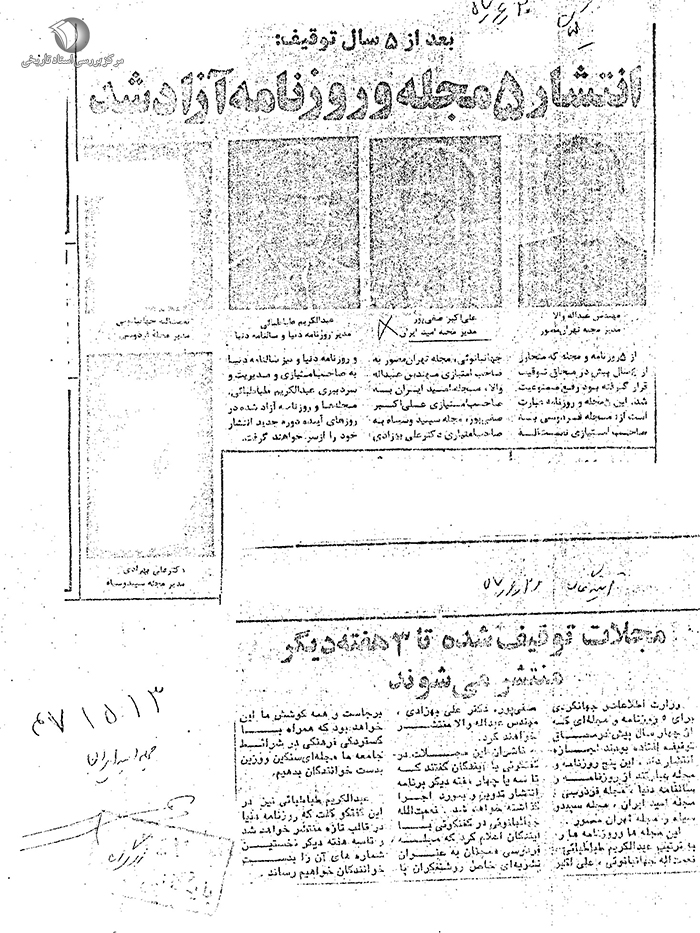 مرکز بررسی اسناد تاریخی
بعد از ۵ سال توقیف:
انتشار ۵ مجله و روزنامه آزاد شد
مهندس عبداله والا
مدیر مجله تهران‌مصور
علی‌اکبر صفی‌پور
مدیر مجله امید ایران
عبدالکریم طباطبائی
مدیر روزنامه دنیا و سالنامه دنیا
نعمت‌اله جهانبانوئی
مدیر مجله فردوسی
دکتر علی بهزادی
مدیر مجله سپید و سیاه
از ۵ روزنامه و مجله که متجاوز
از ۴ سال پیش در محاق توقیف
قرار گرفته بود رفع ممنوعیت
شد. این ۵ مجله و روزنامه عبارت
است از: مجله فردوسی به
صاحب امتیازی نعمت‌اله
جهانبانوئی، مجله تهران‌مصور به
صاحب امتیازی مهندس عبداله
والا، مجله امید ایران به
صاحب امتیازی علی‌اکبر
صفی‌پور، مجله سپید و سیاه به
صاحب‌امتیازی دکتر علی بهزادی
و روزنامه دنیا و نیز سالنامه دنیا
به صاحب‌امتیازی و مدیریت و
سردبیری عبدالکریم طباطبائی.
مجله‌ها و روزنامه آزاد شده در
روزهای آینده دوره جدید انتشار
خود را از سر خواهند گرفت.
مجلات توقیف شده تا ۳ هفته دیگر
منتشر می‌شوند
وزارت اطلاعات و جهانگردی
برای ۵ روزنامه و مجله‌ای که
از چهار سال پیش در محاق
توقیف افتاده بودند اجازه
انتشار داد. این پنج روزنامه و
مجله عبارتند از روزنامه و
سالنامه دنیا، مجله فردوسی،
مجله امید ایران، مجله سپید و
سیاه و مجله تهران مصور.
این مجله ها و روزنامه ها را
به ترتیب عبدالکریم طباطبائی،
نعمت‌اله جهانبانوئی، علی اکبر
صفی‌پور، دکتر علی بهزادی و
مهندس عبداله والا منتشر
خواهند کرد.
ناشران این مجلات در
گفتگوئی با آیندگان گفتند که
تا سه یا چهار هفته دیگر برنامه
انتشار تدوین و بمورد اجرا
گذاشته خواهد شد. نعمت‌الله
جهانبانوئی در گفتگوئی با
آیندگان اعلام کرد که مجله
فردوسی همچنان به عنوان
نشریه‌ای خاص روشنفکران پا
برجاست و همه کوشش ما این
خواهد بود که همراه با
گستردگی فرهنگی در شرایط
جامعه ما مجله‌ای سنگین و وزین
بدست خوانندگان بدهیم.
عبدالکریم طباطبائی نیز در
این گفتگو گفت که روزنامه دنیا
در قالب تازه منتشر خواهد شد
و تا سه هفته دیگر نخستین
شماره های آن را بدست
خوانندگان خواهیم رساند.